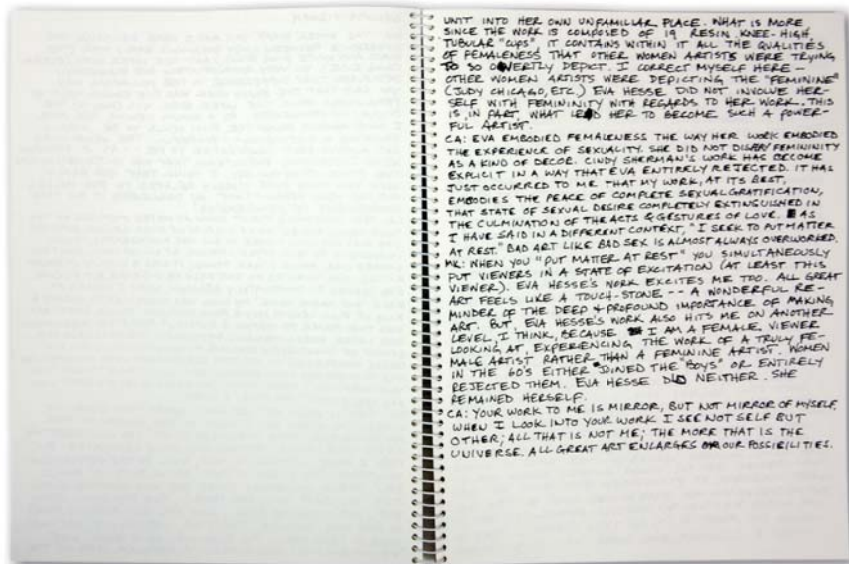 UNIT INTO HER OWN UNFAMILIAR PLACE. WHAT IS MORE
SINCE THE WORK IS COMPOSED OF 19 RESIN KNEE-HIGH,
TUBULAR "CUPS", IT CONTAINS WITHIN IT ALL THE QUALITIES
OF FEMALENESS THAT OTHER WOMEN ARTISTS WERE TRYING
TO SO OVERTLY DEPICT. I CORRECT MYSELF HERE –
OTHER WOMEN ARTISTS WERE DEPICTING THE "FEMININE"
(JUDY CHICAGO, ETC.) EVA HESSE DID NOT INVOLVE HER-
SELF WITH FEMININITY WITH REGARDS TO HER WORK. THIS
IS, IN PART, WHAT LED HER TO BECOME SUCH A POWER-
FUL ARTIST.
CA: EVA EMBODIED FEMALENESS THE WAY HER WORK EMBODIED
THE EXPERIENCE OF SEXUALITY. SHE DID NOT DISPLAY FEMININITY
AS A KIND OF DECOR. CINDY SHERMAN'S WORK HAS BECOME
EXPLICIT IN A WAY THAT EVA ENTIRELY REJECTED. IT HAS
JUST OCCURRED TO ME THAT MY WORK, AT ITS BEST,
EMBODIES THE PEACE OF COMPLETE SEXUAL GRATIFICATION,
THAT STATE OF SEXUAL DESIRE COMPLETELY EXTINGUISHED IN
THE CULMINATION OF THE ACTS & GESTURES OF LOVE. AS
I HAVE SAID IN A DIFFERENT CONTEXT, "I SEEK TO PUT MATTER
AT REST." BAD ART LIKE BAD SEX IS ALMOST ALWAYS OVERWORKED.
MK: WHEN YOU "PUT MATTER AT REST" YOU SIMULTANEOUSLY
PUT VIEWERS IN A STATE OF EXCITATION (AT LEAST THIS
VIEWER). EVA HESSE'S WORK EXCITES ME TOO. ALL GREAT
ART FEELS LIKE A TOUCH-STONE -- A WONDERFUL RE-
MINDER OF THE DEEP & PROFOUND IMPORTANCE OF MAKING
ART. BUT, EVA HESSE'S WORK ALSO HITS ME ON ANOTHER
LEVEL, I THINK, BECAUSE I AM A FEMALE VIEWER
LOOKING AT, EXPERIENCING THE WORK OF A TRULY FE-
MALE ARTIST RATHER THAN A FEMININE ARTIST. WOMEN
IN THE 60'S EITHER JOINED THE "BOYS" OR ENTIRELY
REJECTED THEM. EVA HESSE DID NEITHER. SHE
REMAINED HERSELF.
CA: YOUR WORK TO ME IS MIRROR, BUT NOT MIRROR OF MYSELF,
WHEN I LOOK INTO YOUR WORK I SEE NOT SELF BUT
OTHER; ALL THAT IS NOT ME; THE MORE THAT IS THE
UNIVERSE. ALL GREAT ART ENLARGES OUR POSSIBILITIES.